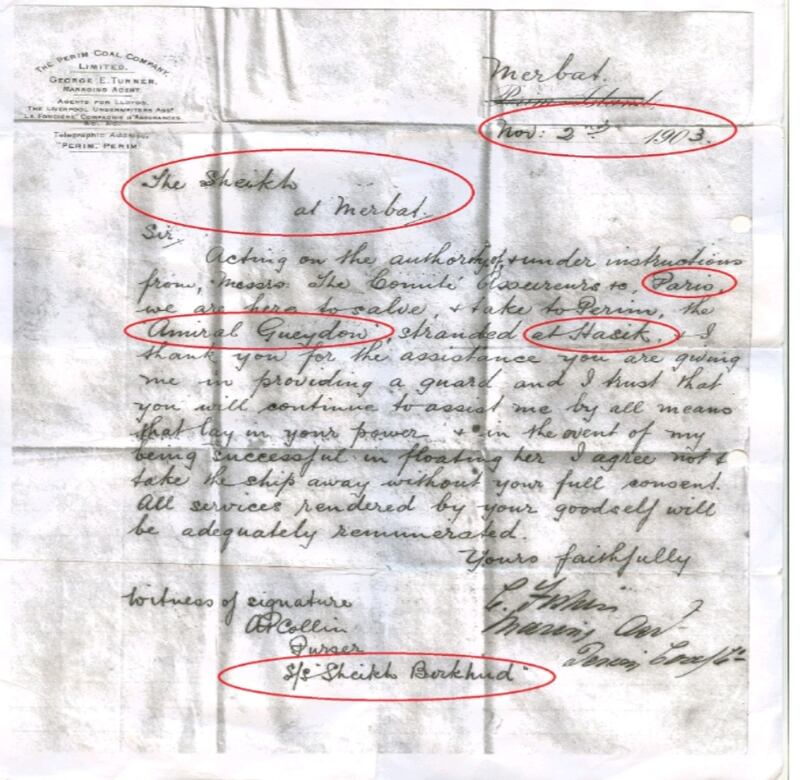 THE PERIM COAL COMPANY,
LIMITED.
GEORGE E. TURNER,
MANAGING AGENT.
AGENTS FOR LLOYDS,
THE LIVERPOOL UNDERWRITERS ASSN
LA FONCIÈRE COMPAGNIE D'ASSURANCES
&C. &C.
Telegraphic Address,
"PERIM," PERIM
Merbat.
Perim Island,
Nov: 2nd 1903.
The Sheikh
at Merbat.
Sir,
Acting on the authority of, & under instructions
from, Messrs. The Comité Assureurs &c, Paris,
we are here to salve, & take to Perim, the
"Amiral Gueydon", stranded at Hasik, & I
thank you for the assistance you are giving
me in providing a guard and I trust that
you will continue to assist me by all means
that lay in your power & in the event of my
being successful in floating her I agree not to
take the ship away without your full consent.
All services rendered by your goodself will
be adequately remunerated.
Yours faithfully
Witness of signature
Collin
Purser
S/S "Sheikh Berkhud"
Perim Coal Co